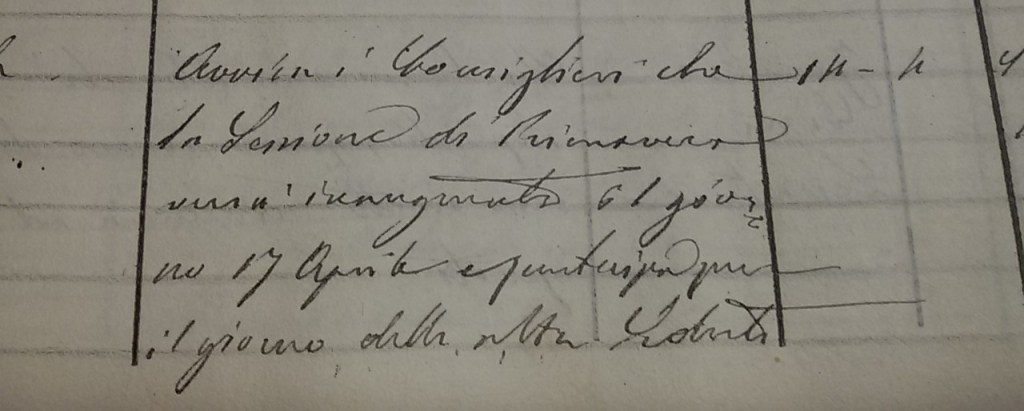 Avvisa i Consiglieri che
la Sessione di Primavera
verrà inaugurata il gior
no 17 Aprile e partecipa pure
il giorno delle altre Sedute